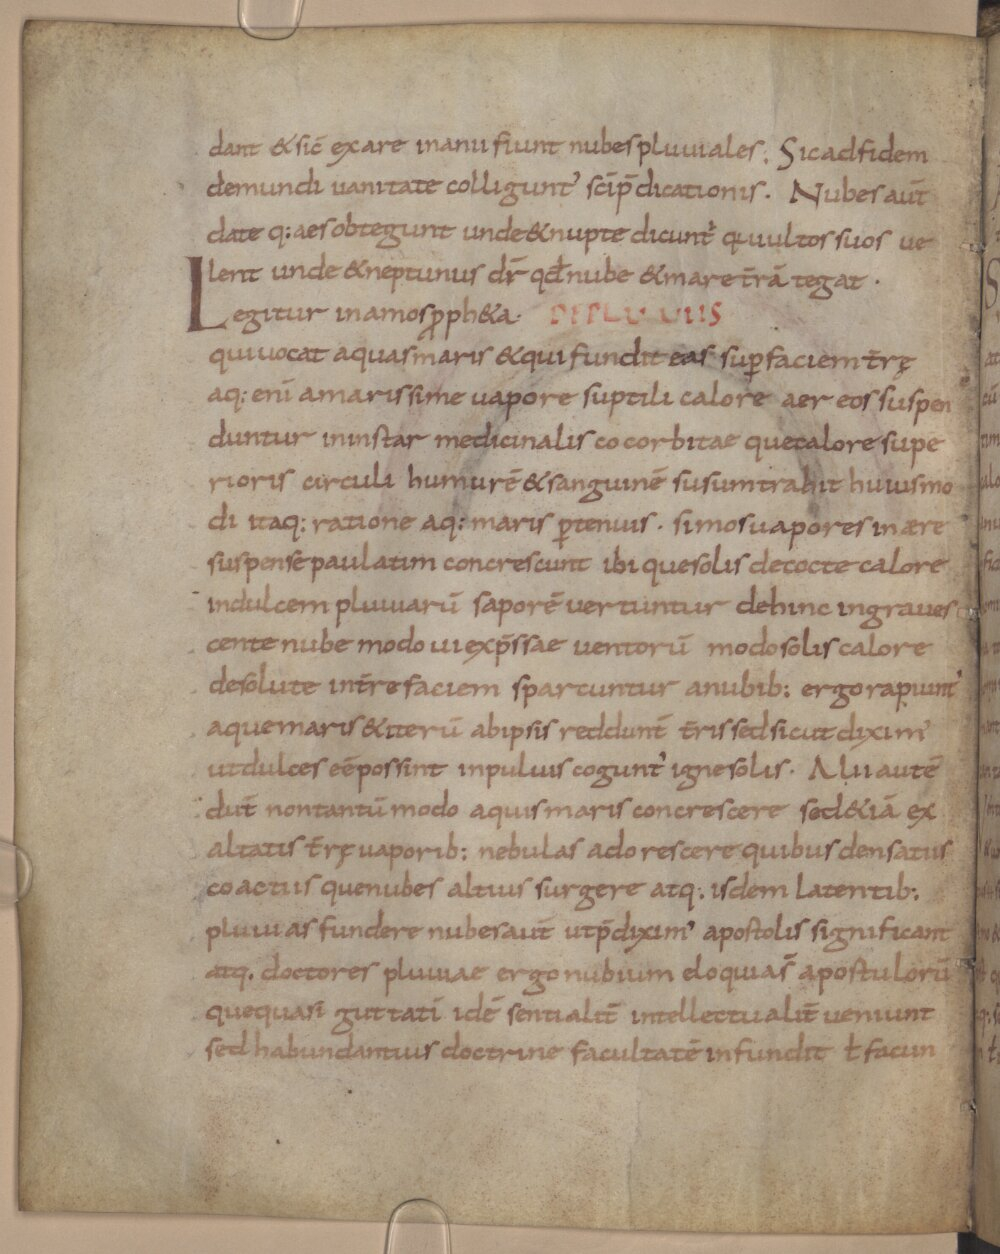 dant & sic̄ ex are inanii fiunt nubes pluuiales; Sic ad fidem
de mundi uanitate colligunt' sc̄i p̄dicationis. Nubes aūt
date q: aes obtegunt unde & nupte dicunt' qui uultos suos ue
lent unde & neptunus dr̄ qđ nube & mare t̄rā tegat.
Legitur in amos ꝓph&a. DE PLUUIIS
qui uocat aquas maris & qui fundit eas sup faciem t̄rę
aq: enī amarissime uapore suptili calore aer eos suspen
duntur in instar medicinalis cocorbitae que calore supe
rioris circuli humurē & sanguinē susum trahit huiusmo
di itaq: ratione aq: maris ꝑ tenuis. simos uapores in aere
suspense paulatim concrescunt ibi que solis decocte calore
in dulcem pluuiarū saporē uertuntur dehinc ingraues
cente nube modo ui exp̄ssae uentorū modo solis calore
desolute in t̄re faciem sparcuntur a nubib: ergo rapiunt'
aque maris & iterū ab ipsis reddunt̄ t̄ris sed sicut dixim'
ut dulces eē possint in puluis cogunt' igne solis. Alii autē
dūt non tantū modo aquis maris concrescere sed & iā ex
altatis t̄rę uaporib: nebulas adorescere quibus densatus
coactus que nubes altius surgere atq: isdem latentib:
pluuias fundere nubes aūt ut p̄dixim' apostolis significant
atq. doctores pluuiae ergo nubium eloquias̄ apostulorū
que quasi guttatī idē sentialit̄ intellectualit̄ ueniunt
sed habundantius doctrine facultatē infundit ł facun